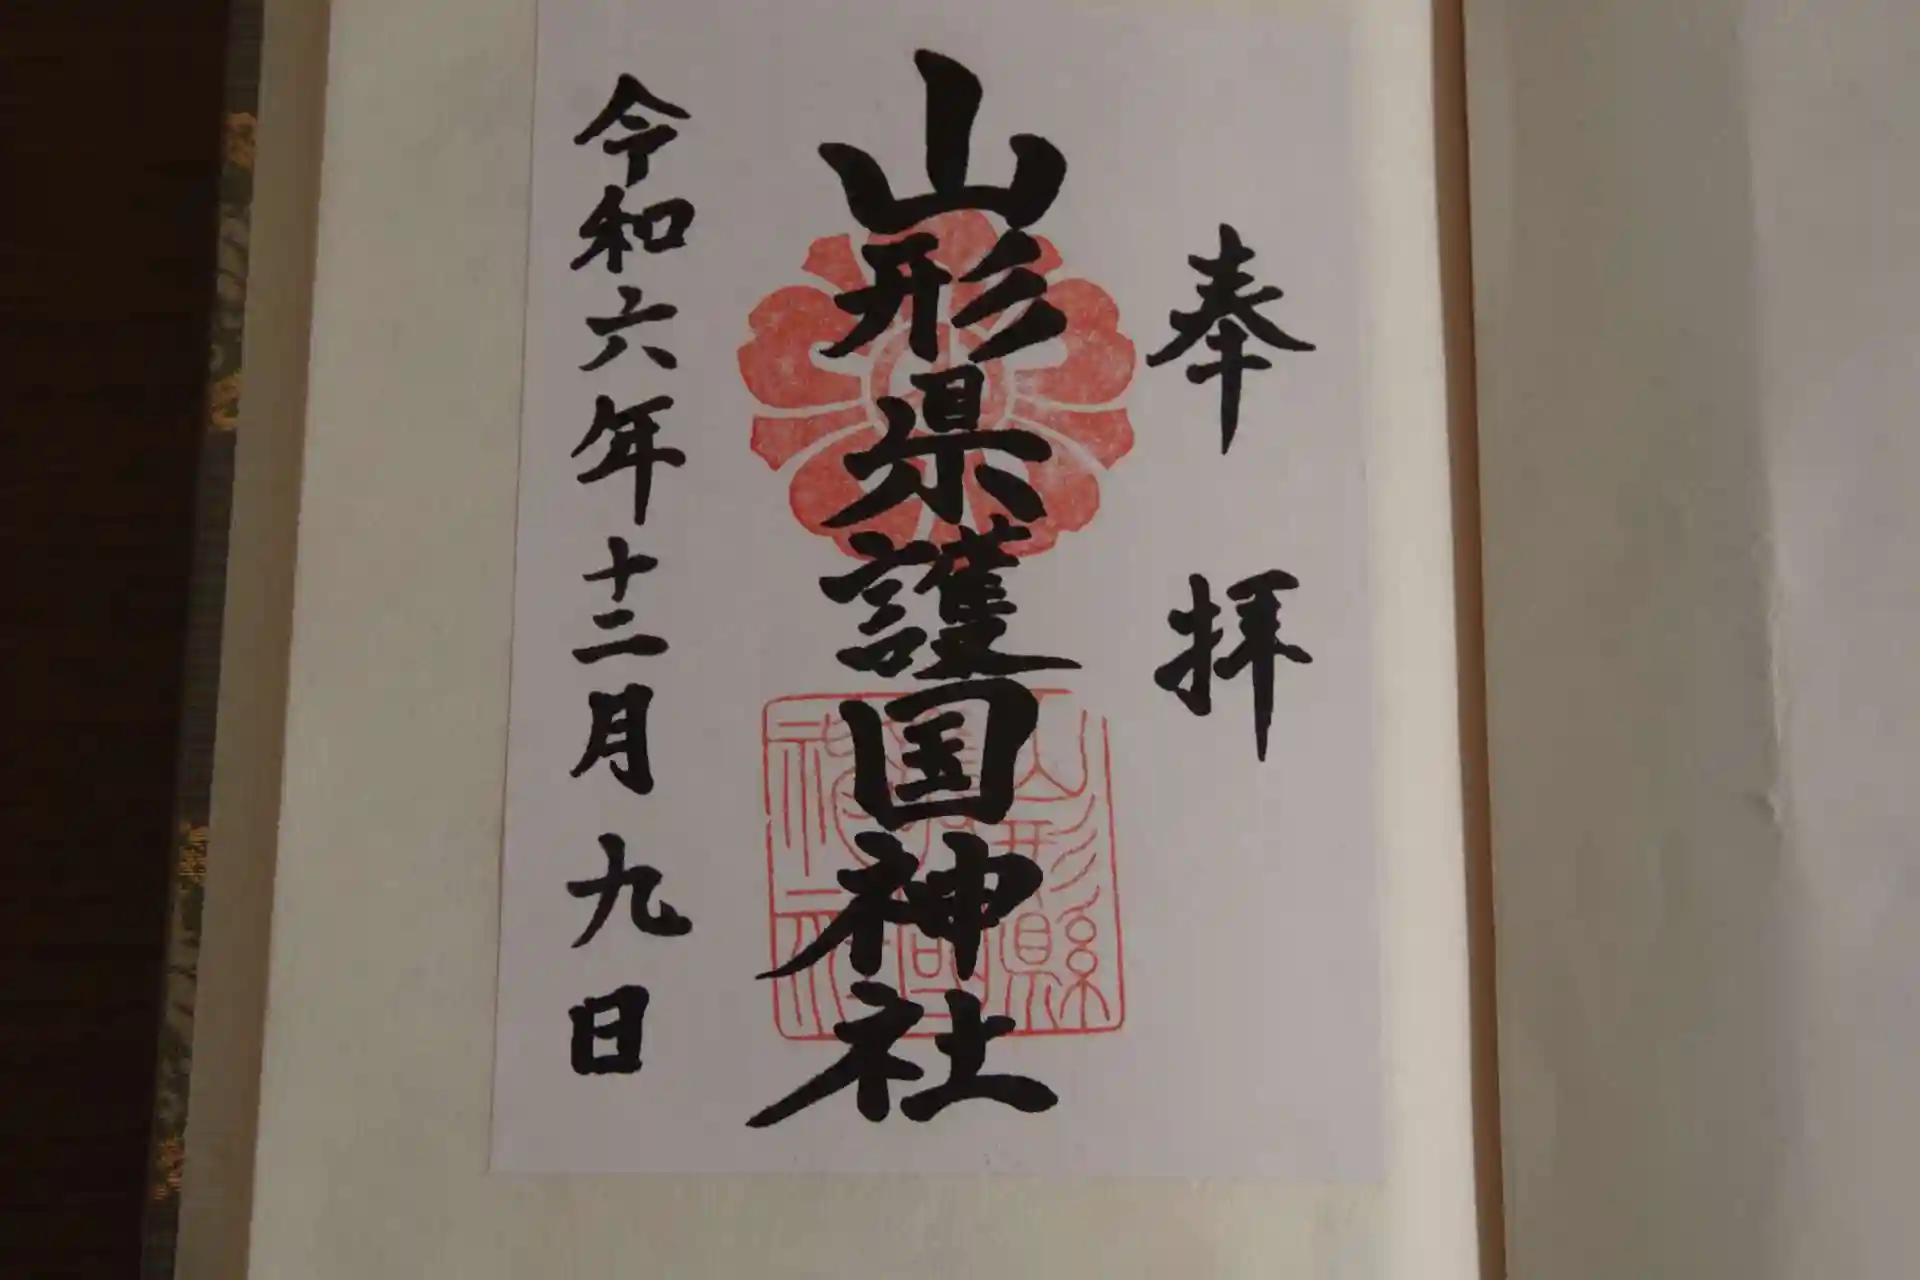 奉拝
山形県護国神社
令和六年十二月九日
山形縣
護國
神社